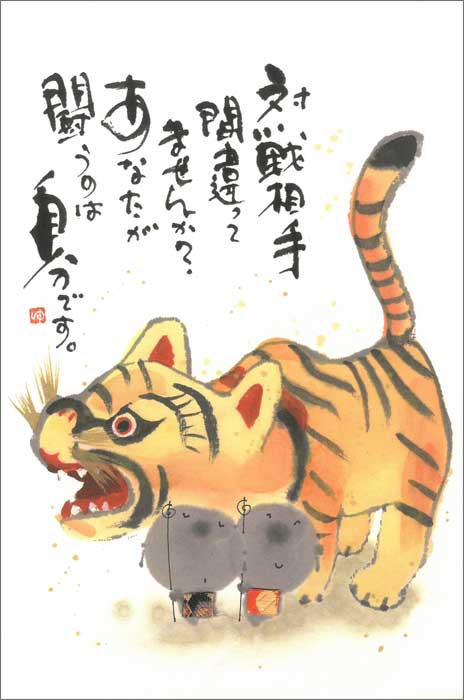 対戦相手
間違って
ませんか？
あなたが
闘うのは
自分です。